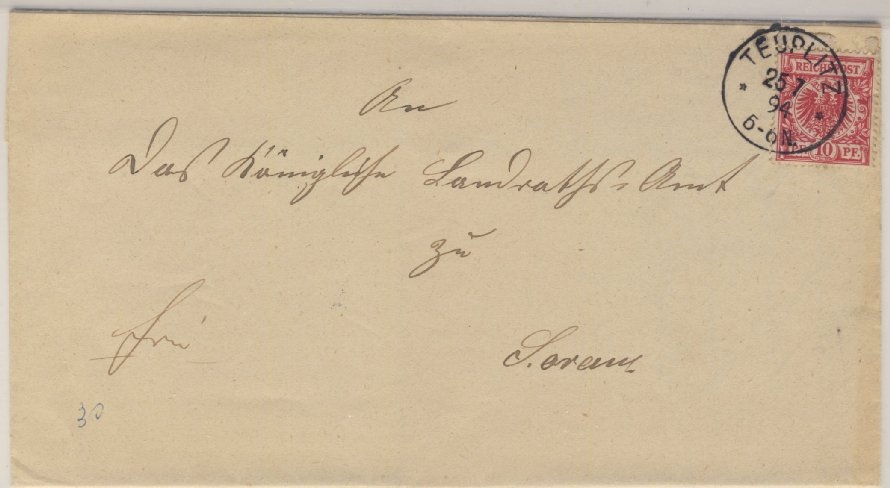 TEUPLITZ
25 7
94
5-6N.
REICHSPOST
10 PF.
An
Das Königliche Landraths-Amt
zu
Sorau
frei
30